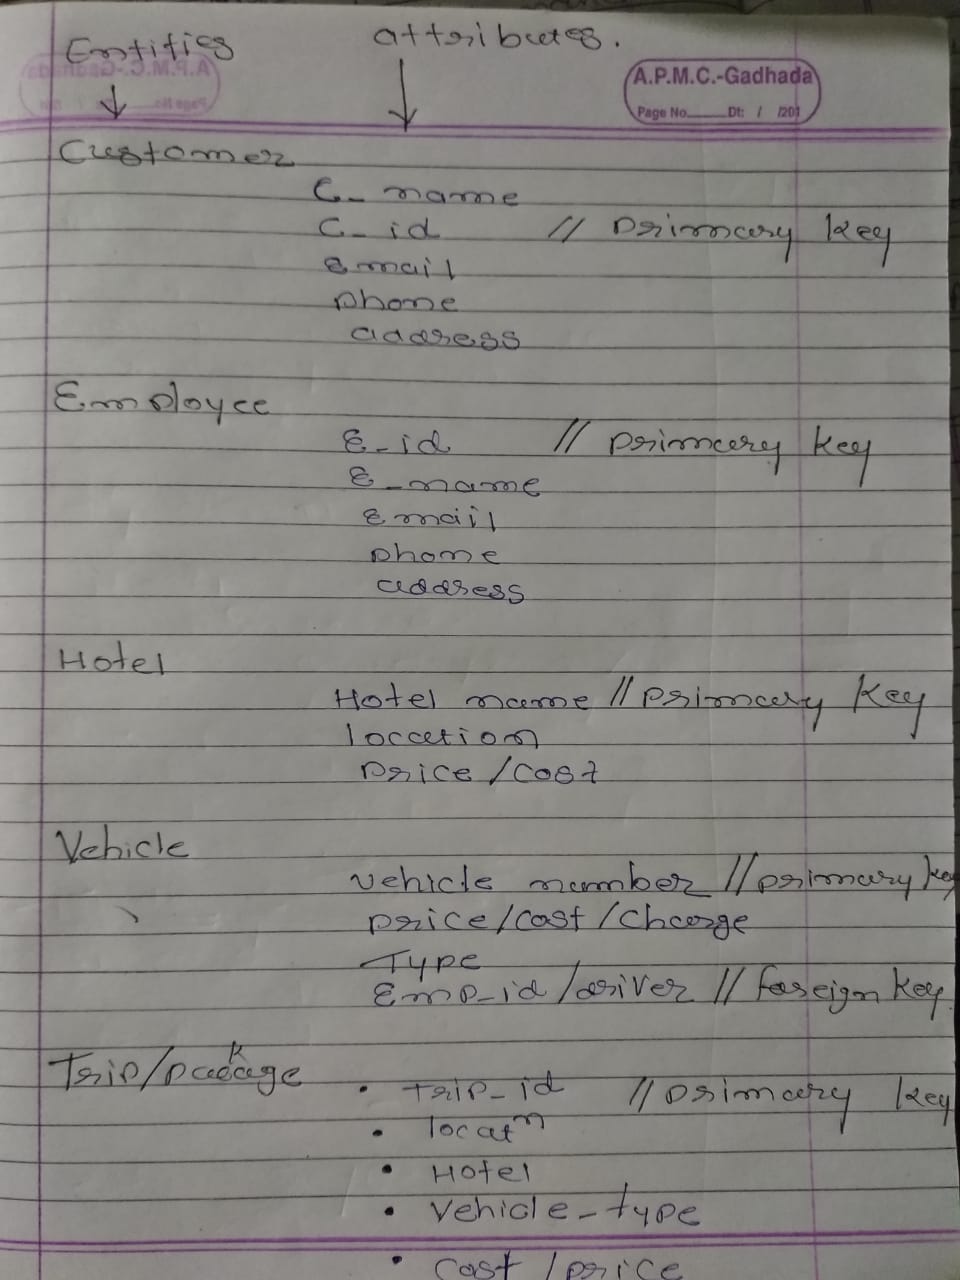 Entities attributes.
A.P.M.C.-Gadhada
Page No. Dt: / /201
Customer
C_name
C_id // primary key
Email
phone
address
Employee
E_id // primary key
E_name
Email
phone
address
Hotel
Hotel name // primary key
location
price/cost
Vehicle
vehicle number // primary key
price/cost/charge
Type
Emp_id/driver // foreign key
Trip/package
• Trip_id // primary key
• locatn
• Hotel
• Vehicle_type
• cost/price